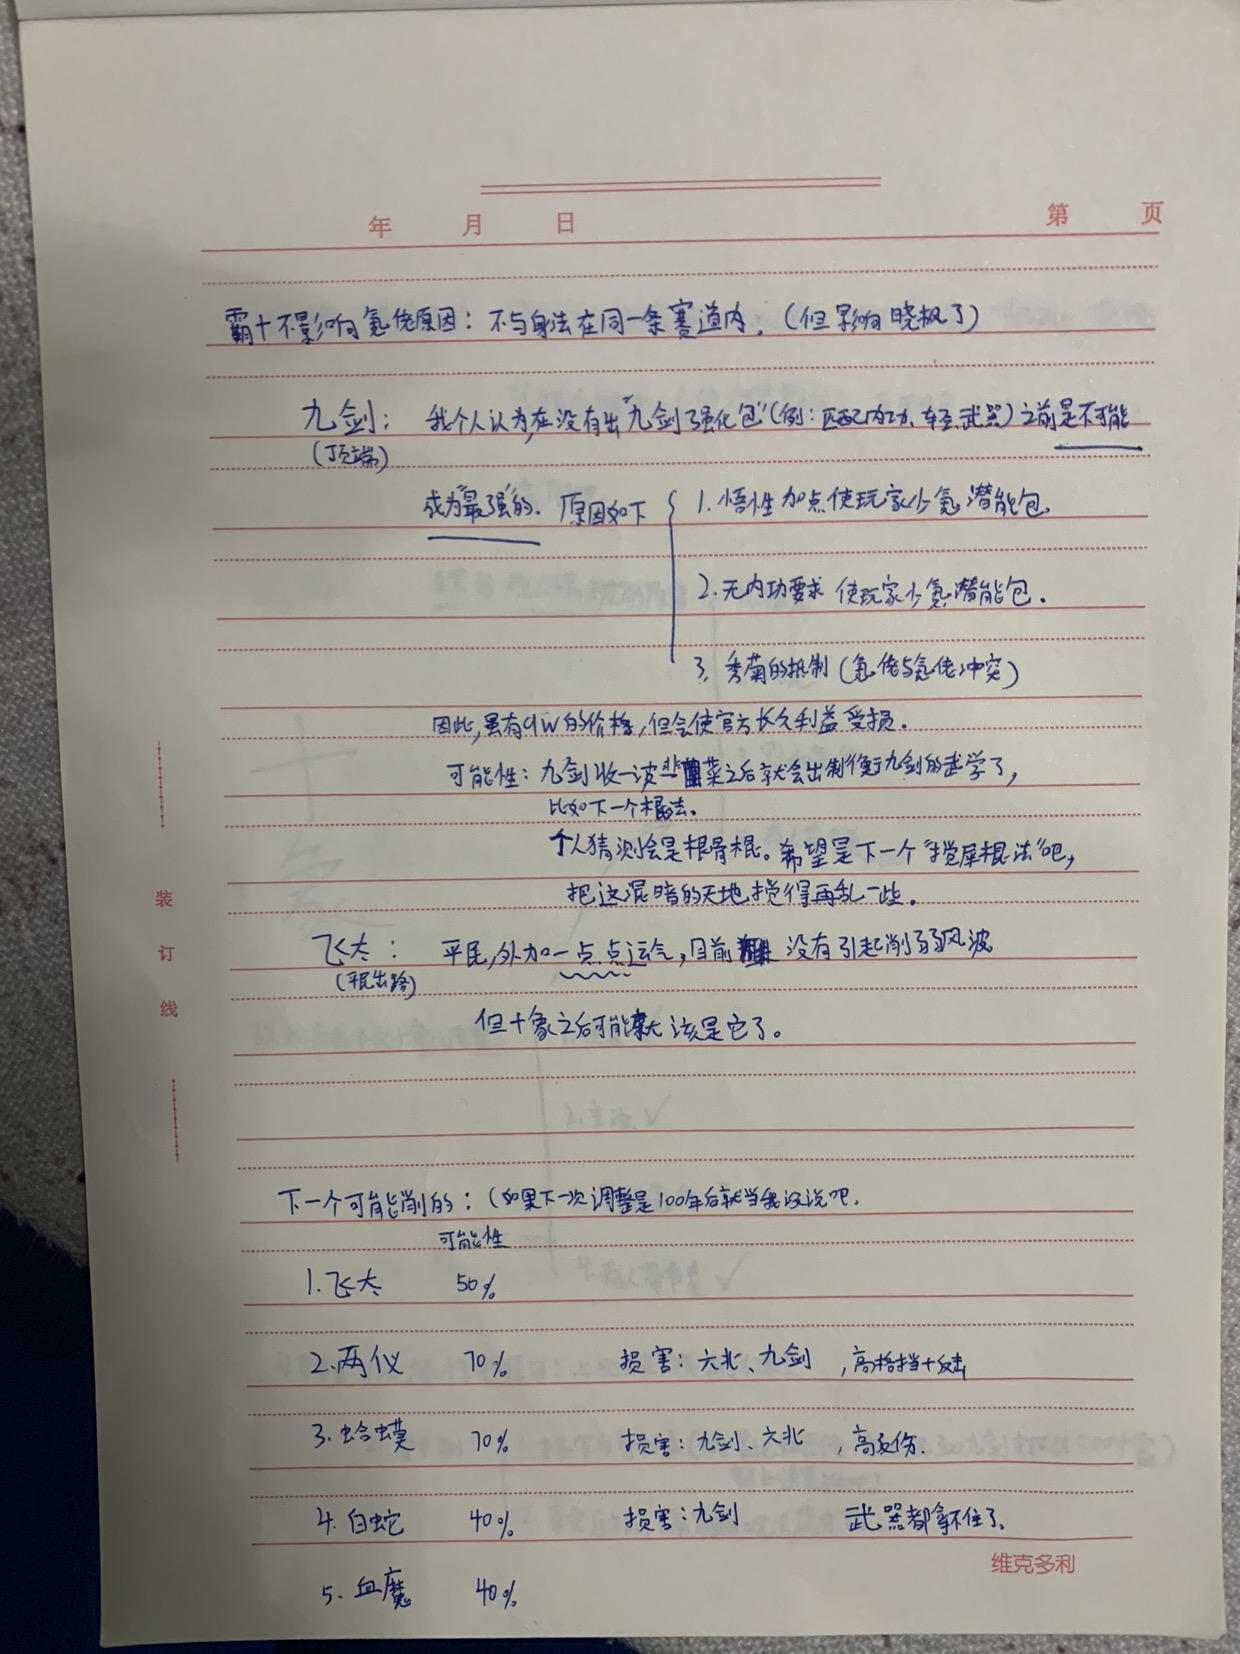 年 月 日
第 页
霸十不影响氪佬原因：不与身法在同一条赛道内。（但影响晓枫了）
九剑： 我个人认为，在没有出“九剑强化包”（例：匹配内功、轻、武器）之前是不可能
（顶端）
成为“最强”的。原因如下
1. 悟性加点使玩家少氪潜能包。
2. 无内功要求 使玩家少氪潜能包。
3. 秀菊的抵制（氪佬与氪佬冲突）
因此，虽有9W的价格，但会使官方长久利益受损。
可能性：九剑收一波韭菜之后就会出制衡九剑的武学了，
比如下一个棍法。
个人猜测会是根骨棍。希望是下一个“搅屎棍法”吧，
把这混暗的天地搅得再乱一些。
飞太： 平民，外加一点点运气，目前 没有引起削弱风波
（平民出路）
但十象之后可能就该是它了。
下一个可能削的：（如果下一次调整是100年后就当我没说吧.
可能性
1. 飞太 50%
2. 两仪 70% 损害：六北、九剑 ，高格挡+反击
3. 蛤蟆 70% 损害：九剑、六北 ，高反伤.
4. 白蛇 40% 损害：九剑 武器都拿不住了.
5. 血魔 40%
装订线
维克多利